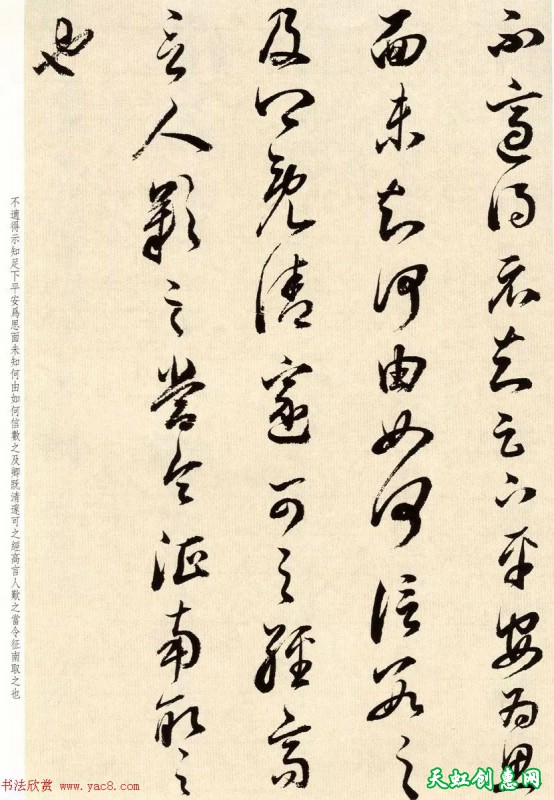 不適得示知足下平安為思
面未知何由如何信歎之
及卿既清邃可之經高
言人歎之當令征南取之
也
不適得示知足下平安爲思面未知何由如何信歎之及卿既清邃可之經高言人歎之當令征南取之也
书法欣赏 www.yac8.com
天虹创惠网